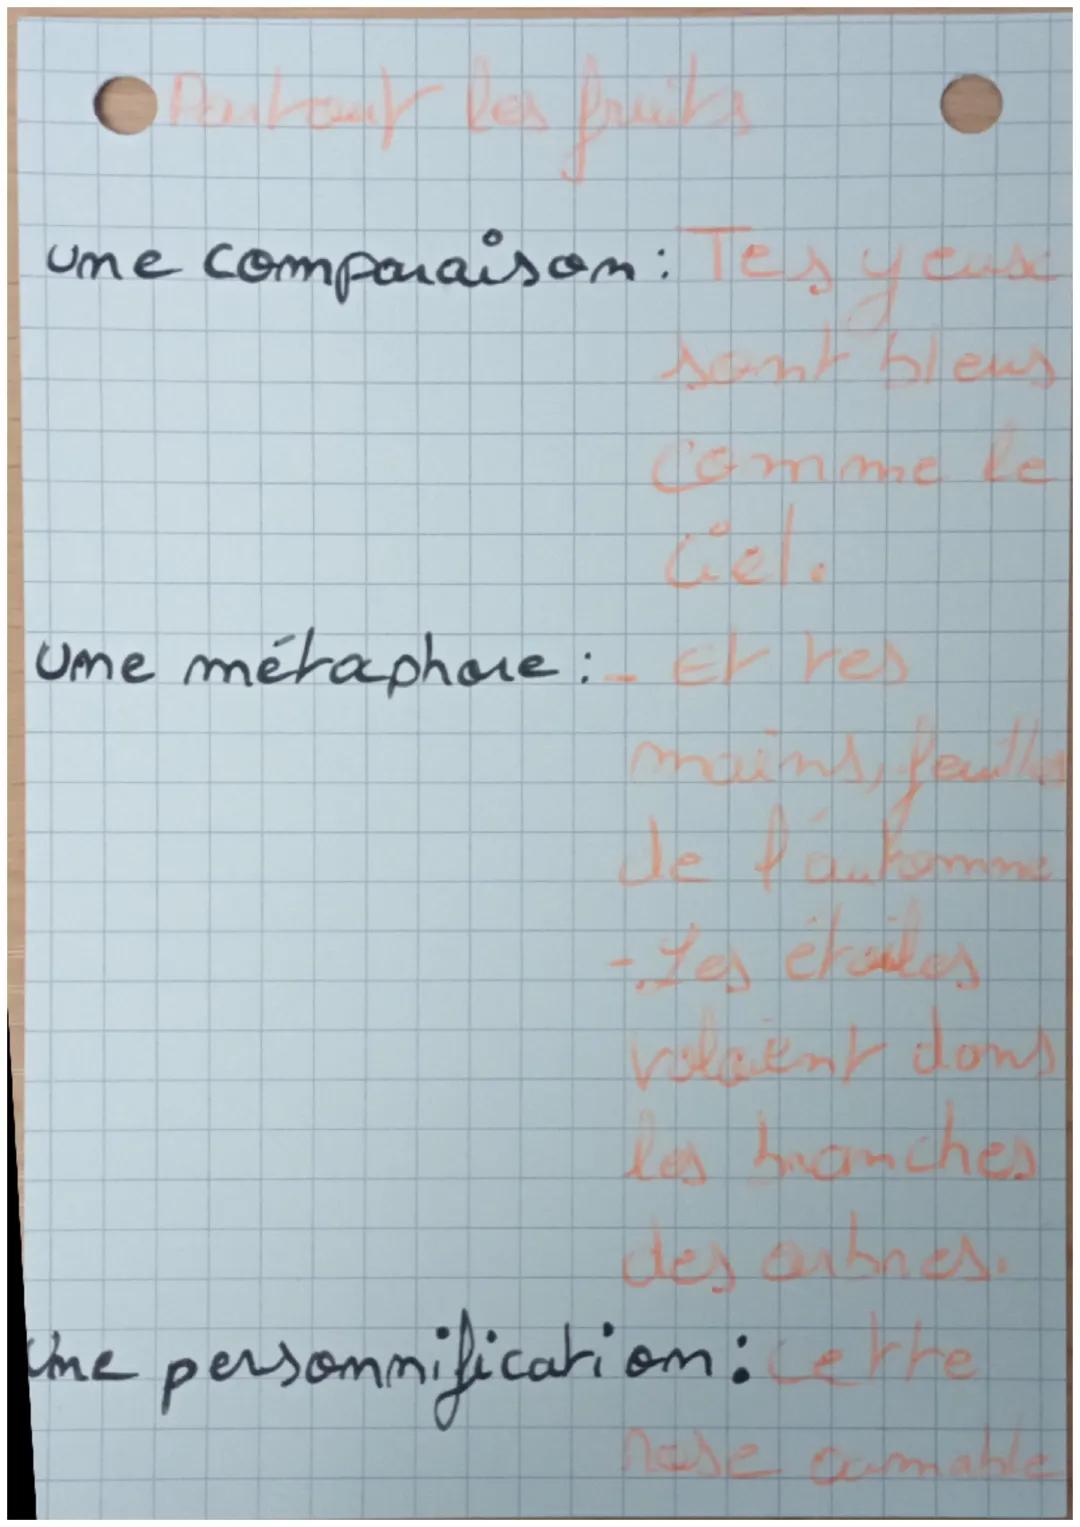 Partout les fruits
une comparaison : Tes yeux
sont bleus
comme le
ciel.
Une métaphore : - Et tes
mains, feuilles
de l'automne
- Les étoiles
volaient dans
les branches
des arbres.
Une personnification : cette
rose aimable